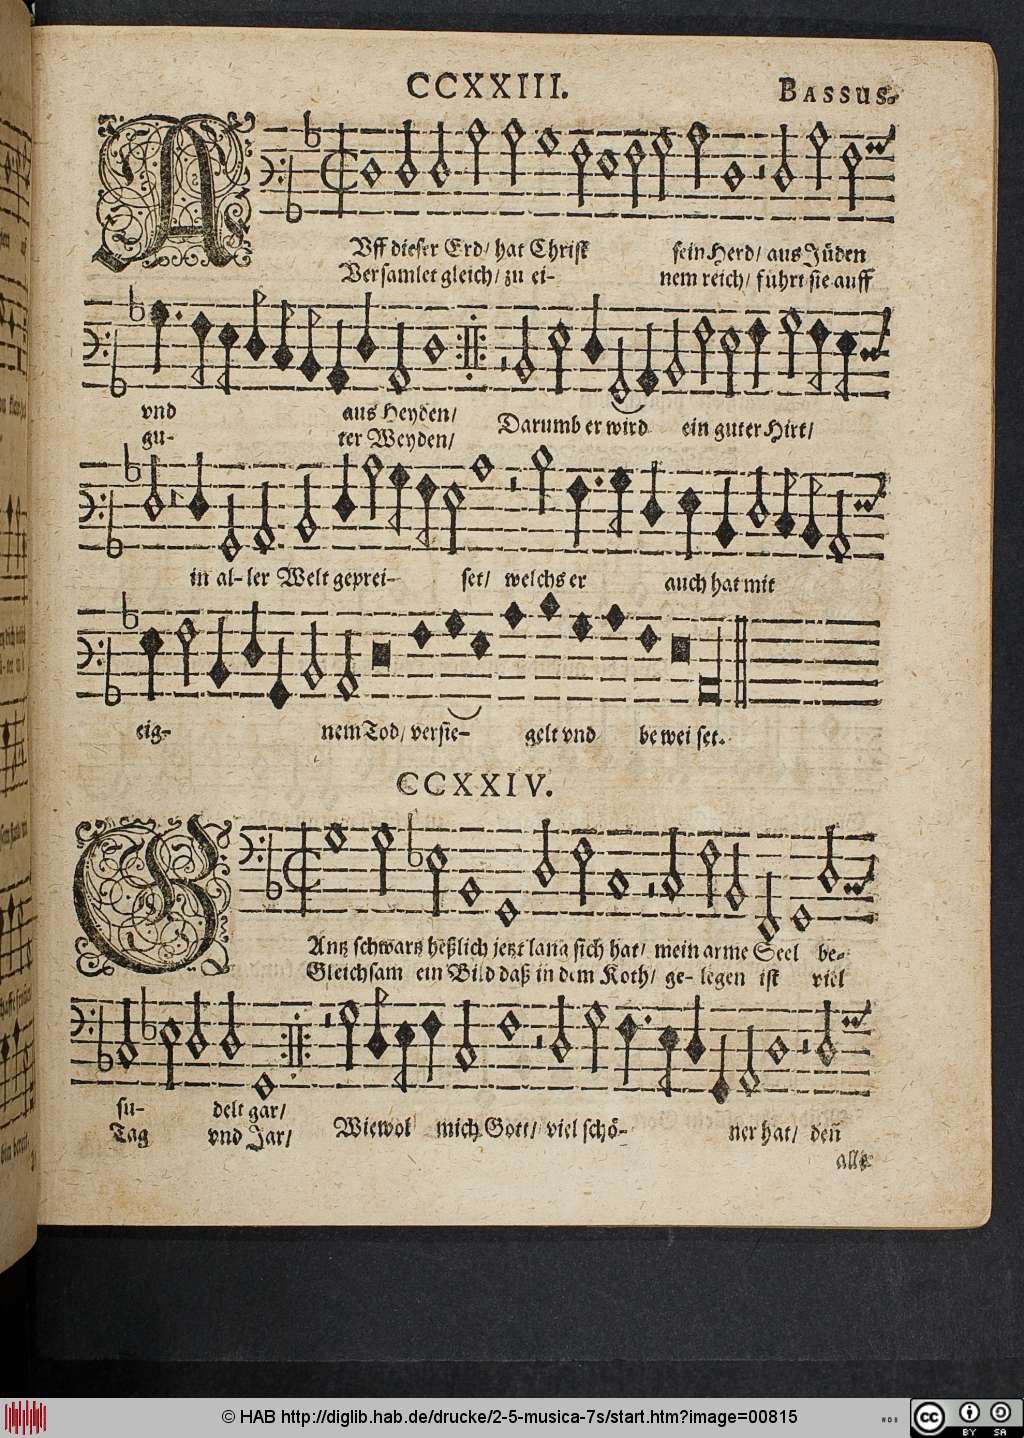 CCXXIII.
BASSUS.
AUff dieser Erd/ hat Christ sein Herd/ aus Jüden
Versamlet gleich/ zu ei- nem reich/ führt sie auff
vnd aus Heyden/
gu- ter Weyden/
Darumb er wird ein guter Hirt/
in al- ler Welt geprei- set/ welchs er auch hat mit
eig- nem Tod/ versie- gelt vnd bewei set.
CCXXIV.
GAntz schwartz heßlich jetzt lang sich hat/ mein arme Seel be-
Gleichsam ein Bild daß in dem Koth/ ge- legen ist viel
su- delt gar/
Tag vnd Jar/
Wiewol mich Gott/ viel schö- ner hat/ deñ
alle
© HAB http://diglib.hab.de/drucke/2-5-musica-7s/start.htm?image=00815
cc BY SA